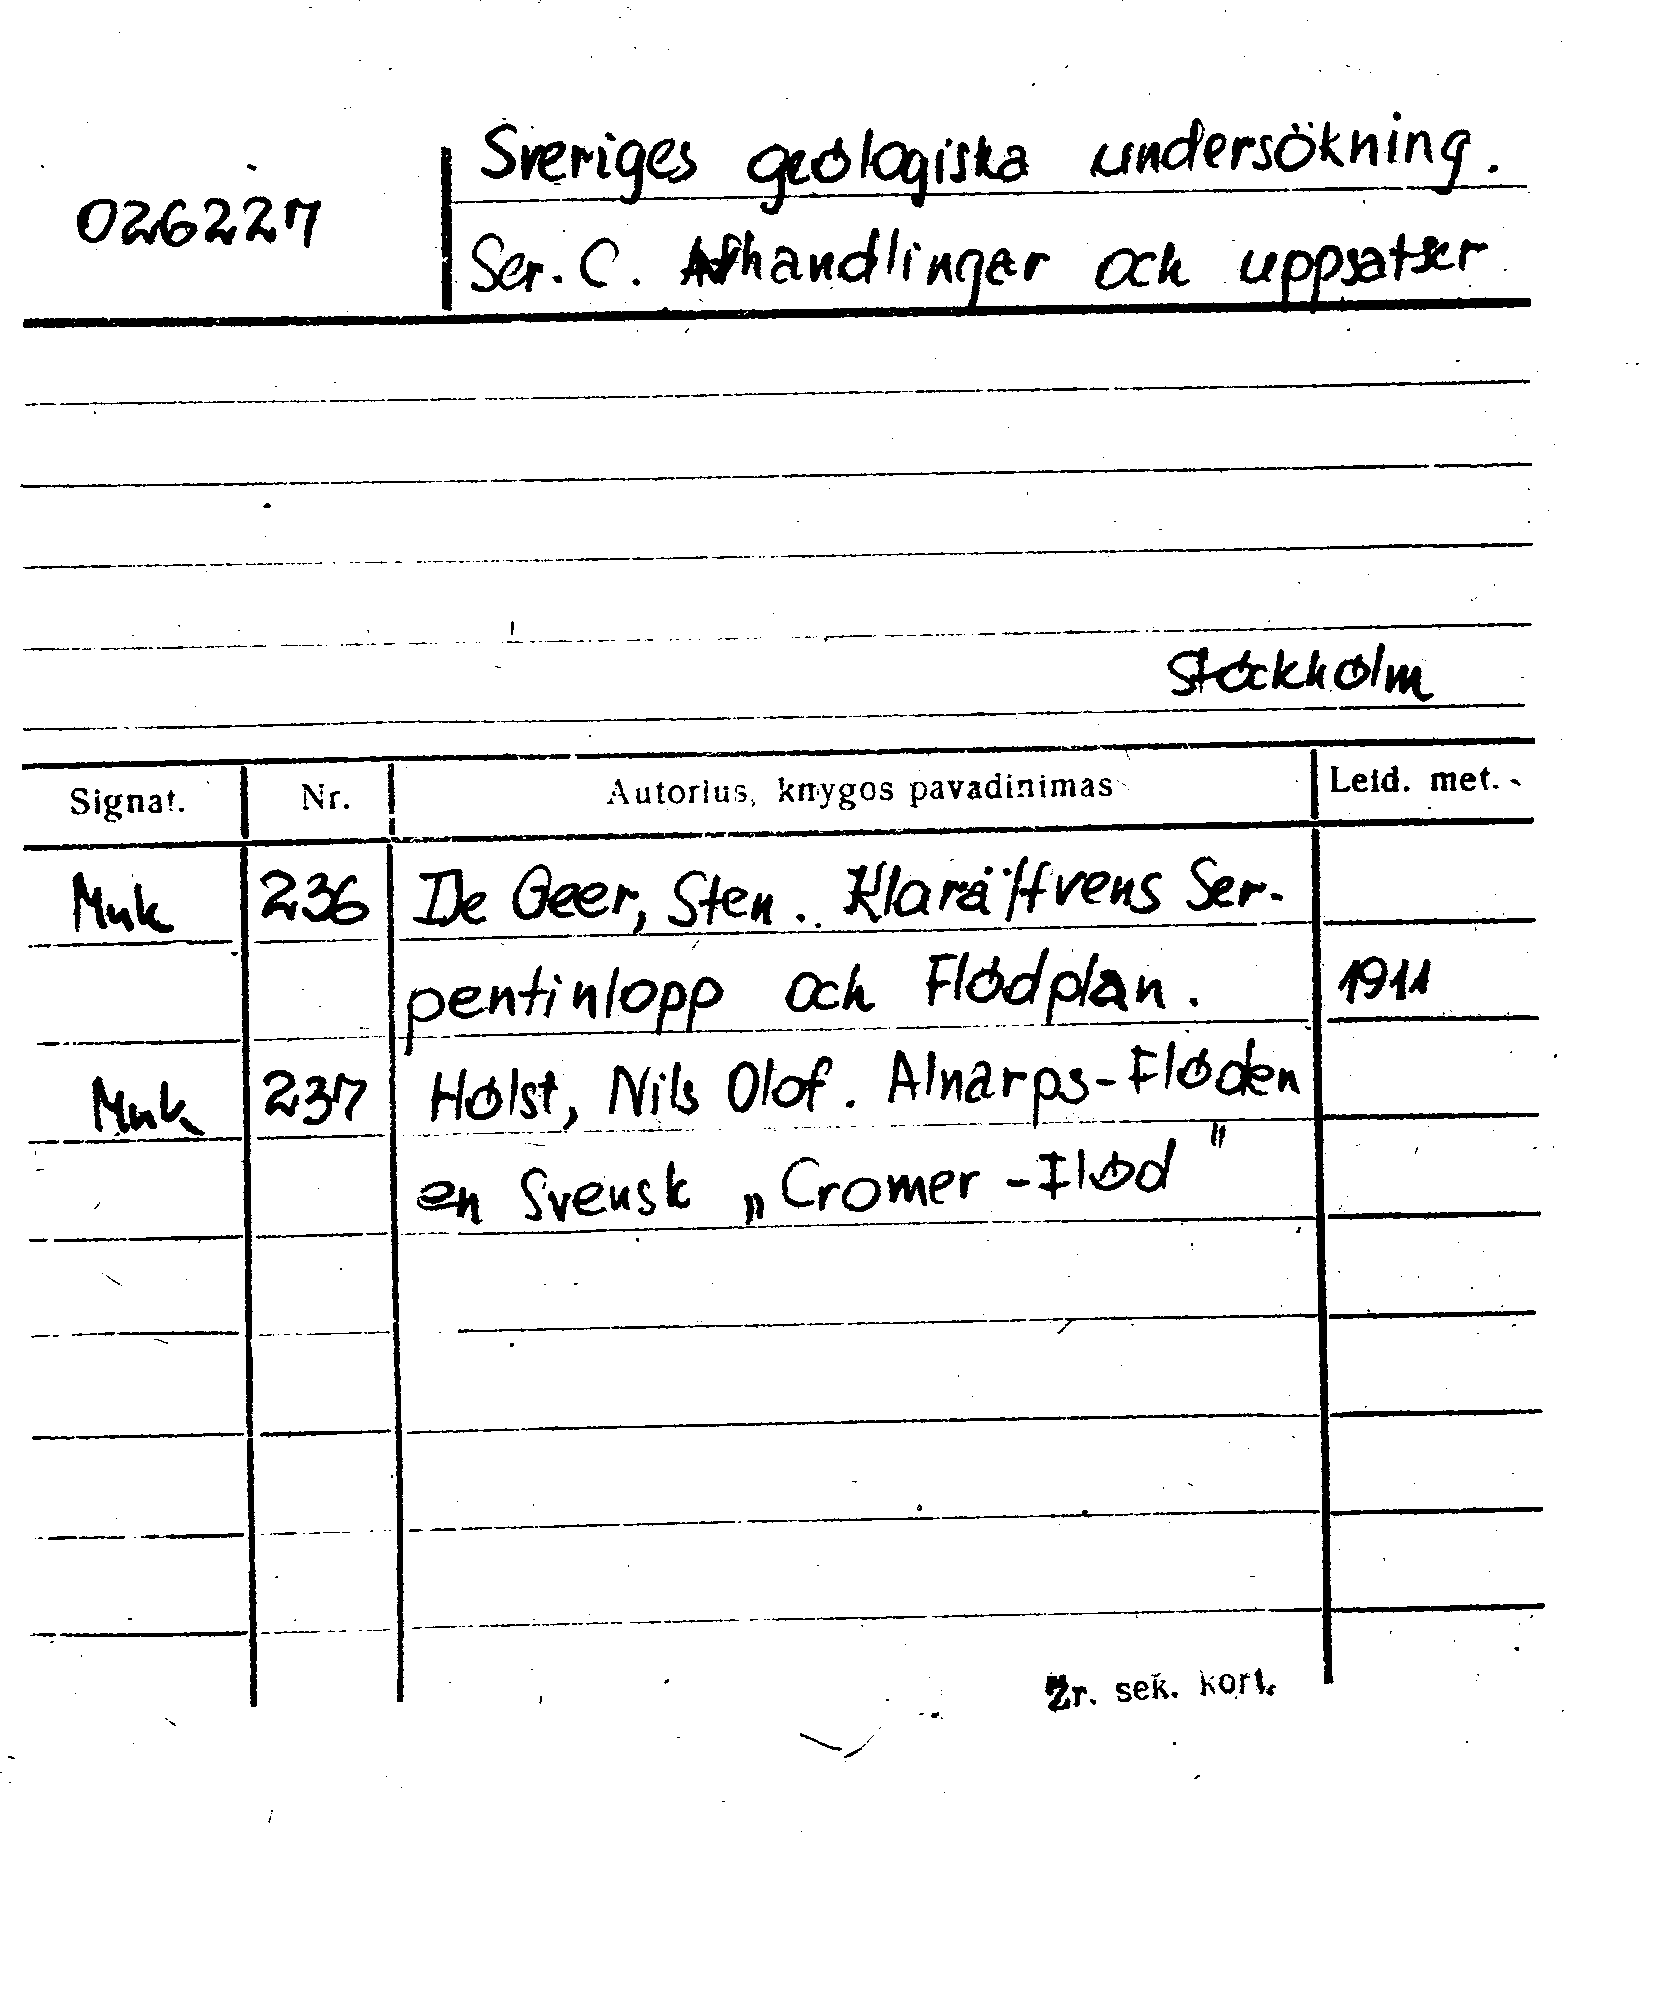 Sveriges geologiska undersökning.
026227
Ser. C. Afhandlingar och uppsatser
Stockholm
Signat. Nr. Autorius, knygos pavadinimas Leid. met.
Muk 236 De Geer, Sten. Klarälfvens Ser-
pentinlopp och Flodplan. 1911
Muk 237 Holst, Nils Olof. Alnarps-Floden
en Svensk „Cromer-Flod"
Žr. sek. kort.